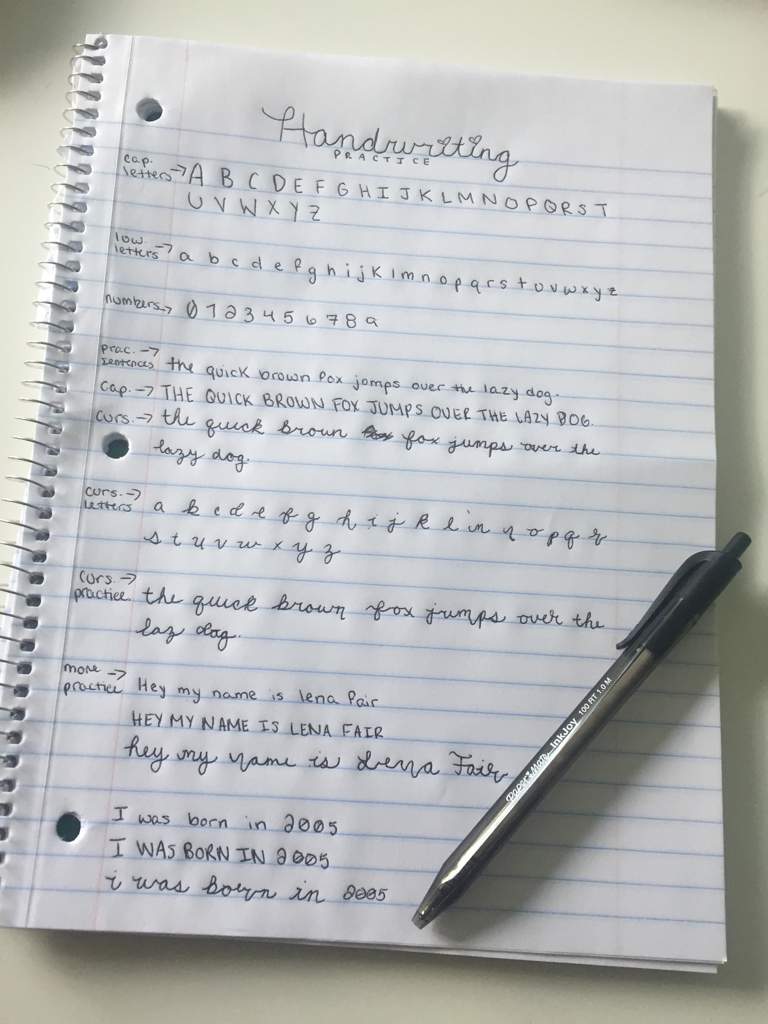 Handwriting
PRACTICE
cap. letters → A B C D E F G H I J K L M N O P Q R S T
U V W X Y Z
low letters → a b c d e f g h i j k l m n o p q r s t u v w x y z
numbers → 0 1 2 3 4 5 6 7 8 9
prac. sentences → the quick brown fox jumps over the lazy dog.
cap. → THE QUICK BROWN FOX JUMPS OVER THE LAZY DOG.
curs. → the quick brown fox jumps over the
lazy dog.
curs. letters → a b c d e f g h i j k l m n o p q r
s t u v w x y z
curs. practice → the quick brown fox jumps over the
laz dog.
more practice → Hey my name is lena fair
HEY MY NAME IS LENA FAIR
hey my name is Lena Fair
I was born in 2005
I WAS BORN IN 2005
i was born in 2005
PAPER MATE InkJoy 100 RT 1.0 M